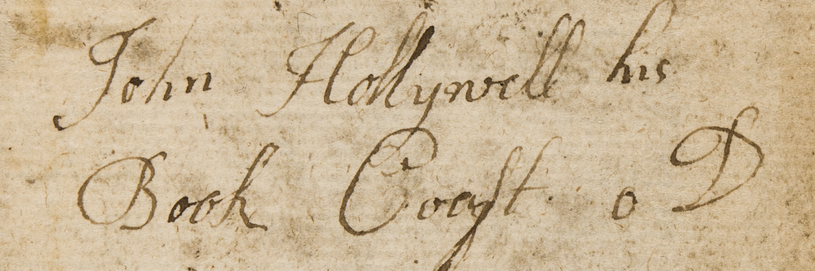 John Hollywell his
Book Coast o D